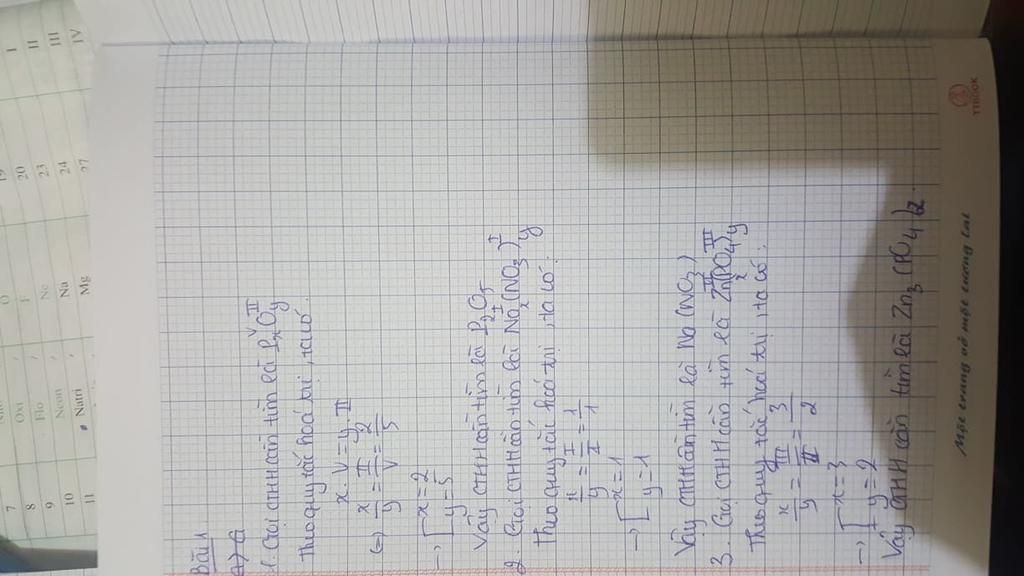 Bài 1
1. Gọi CTHH cần tìm là PxOy
V II
Theo quy tắc hoá trị, ta có:
x . V = y . II
(=) x/y = II/V = 2/5
→ [ x = 2
y = 5
Vậy CTHH cần tìm là P2O5
2. Gọi CTHH cần tìm là Nax(NO3)y
I I
Theo quy tắc hoá trị, ta có:
x/y = I/I = 1/1
→ [ x = 1
y = 1
Vậy CTHH cần tìm là Na(NO3)
3. Gọi CTHH cần tìm là Znx(PO4)y
II III
Theo quy tắc hoá trị, ta có:
x/y = III/II = 3/2
→ [ x = 3
y = 2
Vậy CTHH cần tìm là Zn3(PO4)2.
Một trang vở một tương lai
TTBOOK
7
8 Oxi O
9 Flo F
10 Neon Ne 20 I
11 Natri Na 23 II
Mg 24 III
27 IV